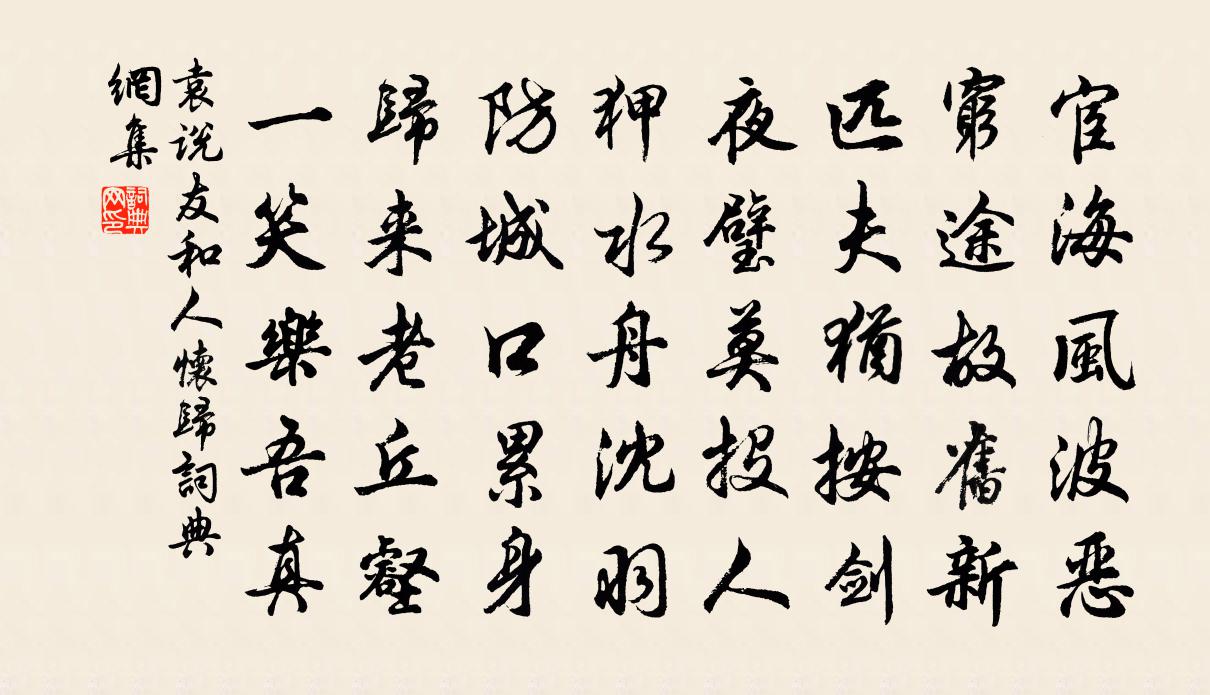 宦海風波惡
窮途故舊新
匹夫猶按劍
夜璧莫投人
狎水舟沈羽
防城口累身
歸来老丘壑
一笑樂吾真
袁説友和人懷歸詞典
網集
詞典
网印